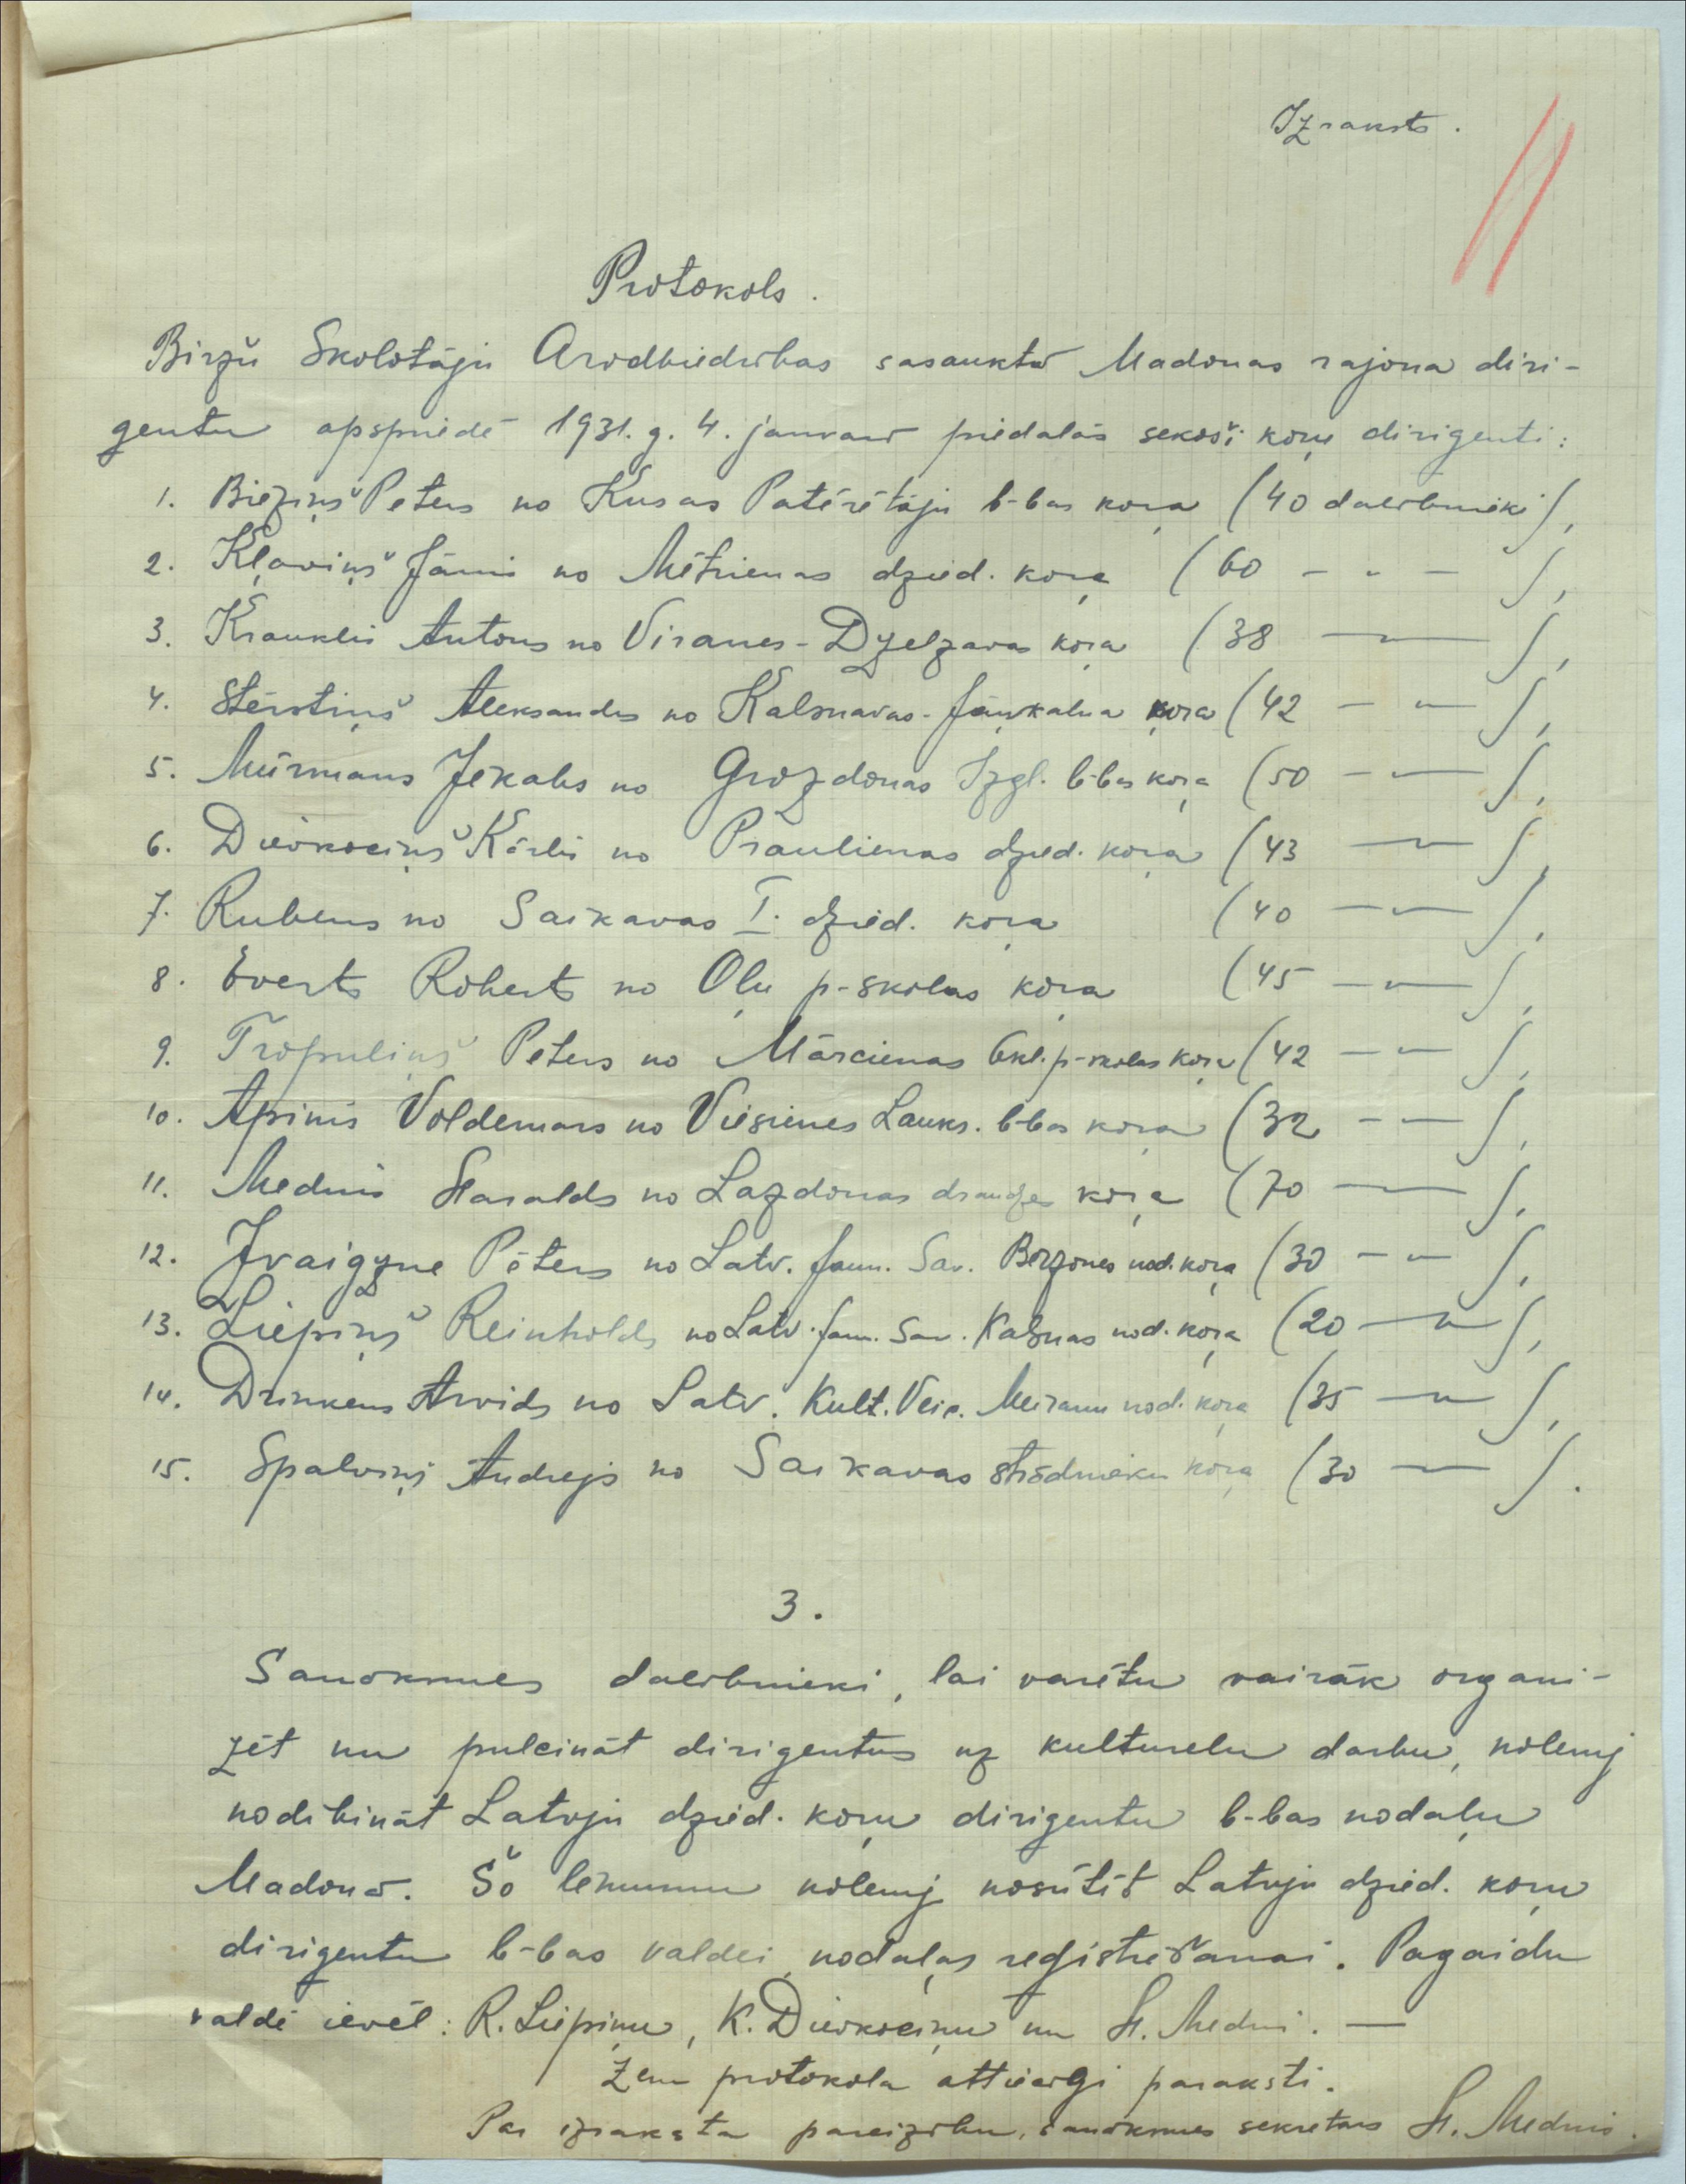 Izraksts.
Protokols.
Biržu Skolotāju Arodbiedrības sasauktā Madonas rajona diri-
gentu apspriedē 1931. g. 4. janvarī piedalās sekoši koŗu dirigenti:
1. Bieziņš Peters no Kusas Patērētāju b-bas koŗa (40 dalībnieki),
2. Kļaviņš Jānis no Mētrienas dzied. koŗa (60 - " - ),
3. Krauklis Antons no Viranes-Dzelzavas koŗa (38 - " - ),
4. Stērstiņš Aleksandrs no Kalsnavas-Jāņkalna koŗa (42 - " - ),
5. Mūrmans Jēkabs no Grozdonas Izgl. b-bas koŗa (50 - " - ),
6. Dievkociņš Kārlis no Praulienas dzied. koŗa (43 - " - ),
7. Rubens no Saikavas I. dzied. koŗa (40 - " - ),
8. Everts Roberts no Oļu p-skolas koŗa (45 - " - ),
9. Tropuliņš Peters no Mārcienas 6kl. p-skolas koŗa (42 - " - ),
10. Apinis Voldemars no Viesienes Lauks. b-bas koŗa (32 - " - ),
11. Mednis Haralds no Lazdonas draudzes koŗa (70 - " - ),
12. Zvaigzne Pēters no Latv. Jaun. Sav. Berzones nod. koŗa (30 - " - ),
13. Liepiņš Reinholds no Latv. Jaun. Sav. Kalsnas nod. koŗa (20 - " - ),
14. Drinkens Arvids no Latv. Kult. Veic. Meiranu nod. koŗa (35 - " - ),
15. Spalviņš Andrejs no Saikavas strādnieku koŗa (30 - " - ).
3.
Sanāksmes dalībnieki, lai varētu vairāk organi-
zēt un pulcināt dirigentus uz kulturelu darbu, nolemj
nodibināt Latvju dzied. koŗu dirigentu b-bas nodaļu
Madonā. Šo lēmumu nolemj nosūtīt Latvju dzied. koŗu
dirigentu b-bas valdei nodaļas reģistrēšanai. Pagaidu
valdē ievēl: R. Liepiņu, K. Dievkociņu un H. Medni. —
Zem protokola attiecīgi paraksti.
Par izraksta pareizību, sanāksmes sekretārs H. Mednis.